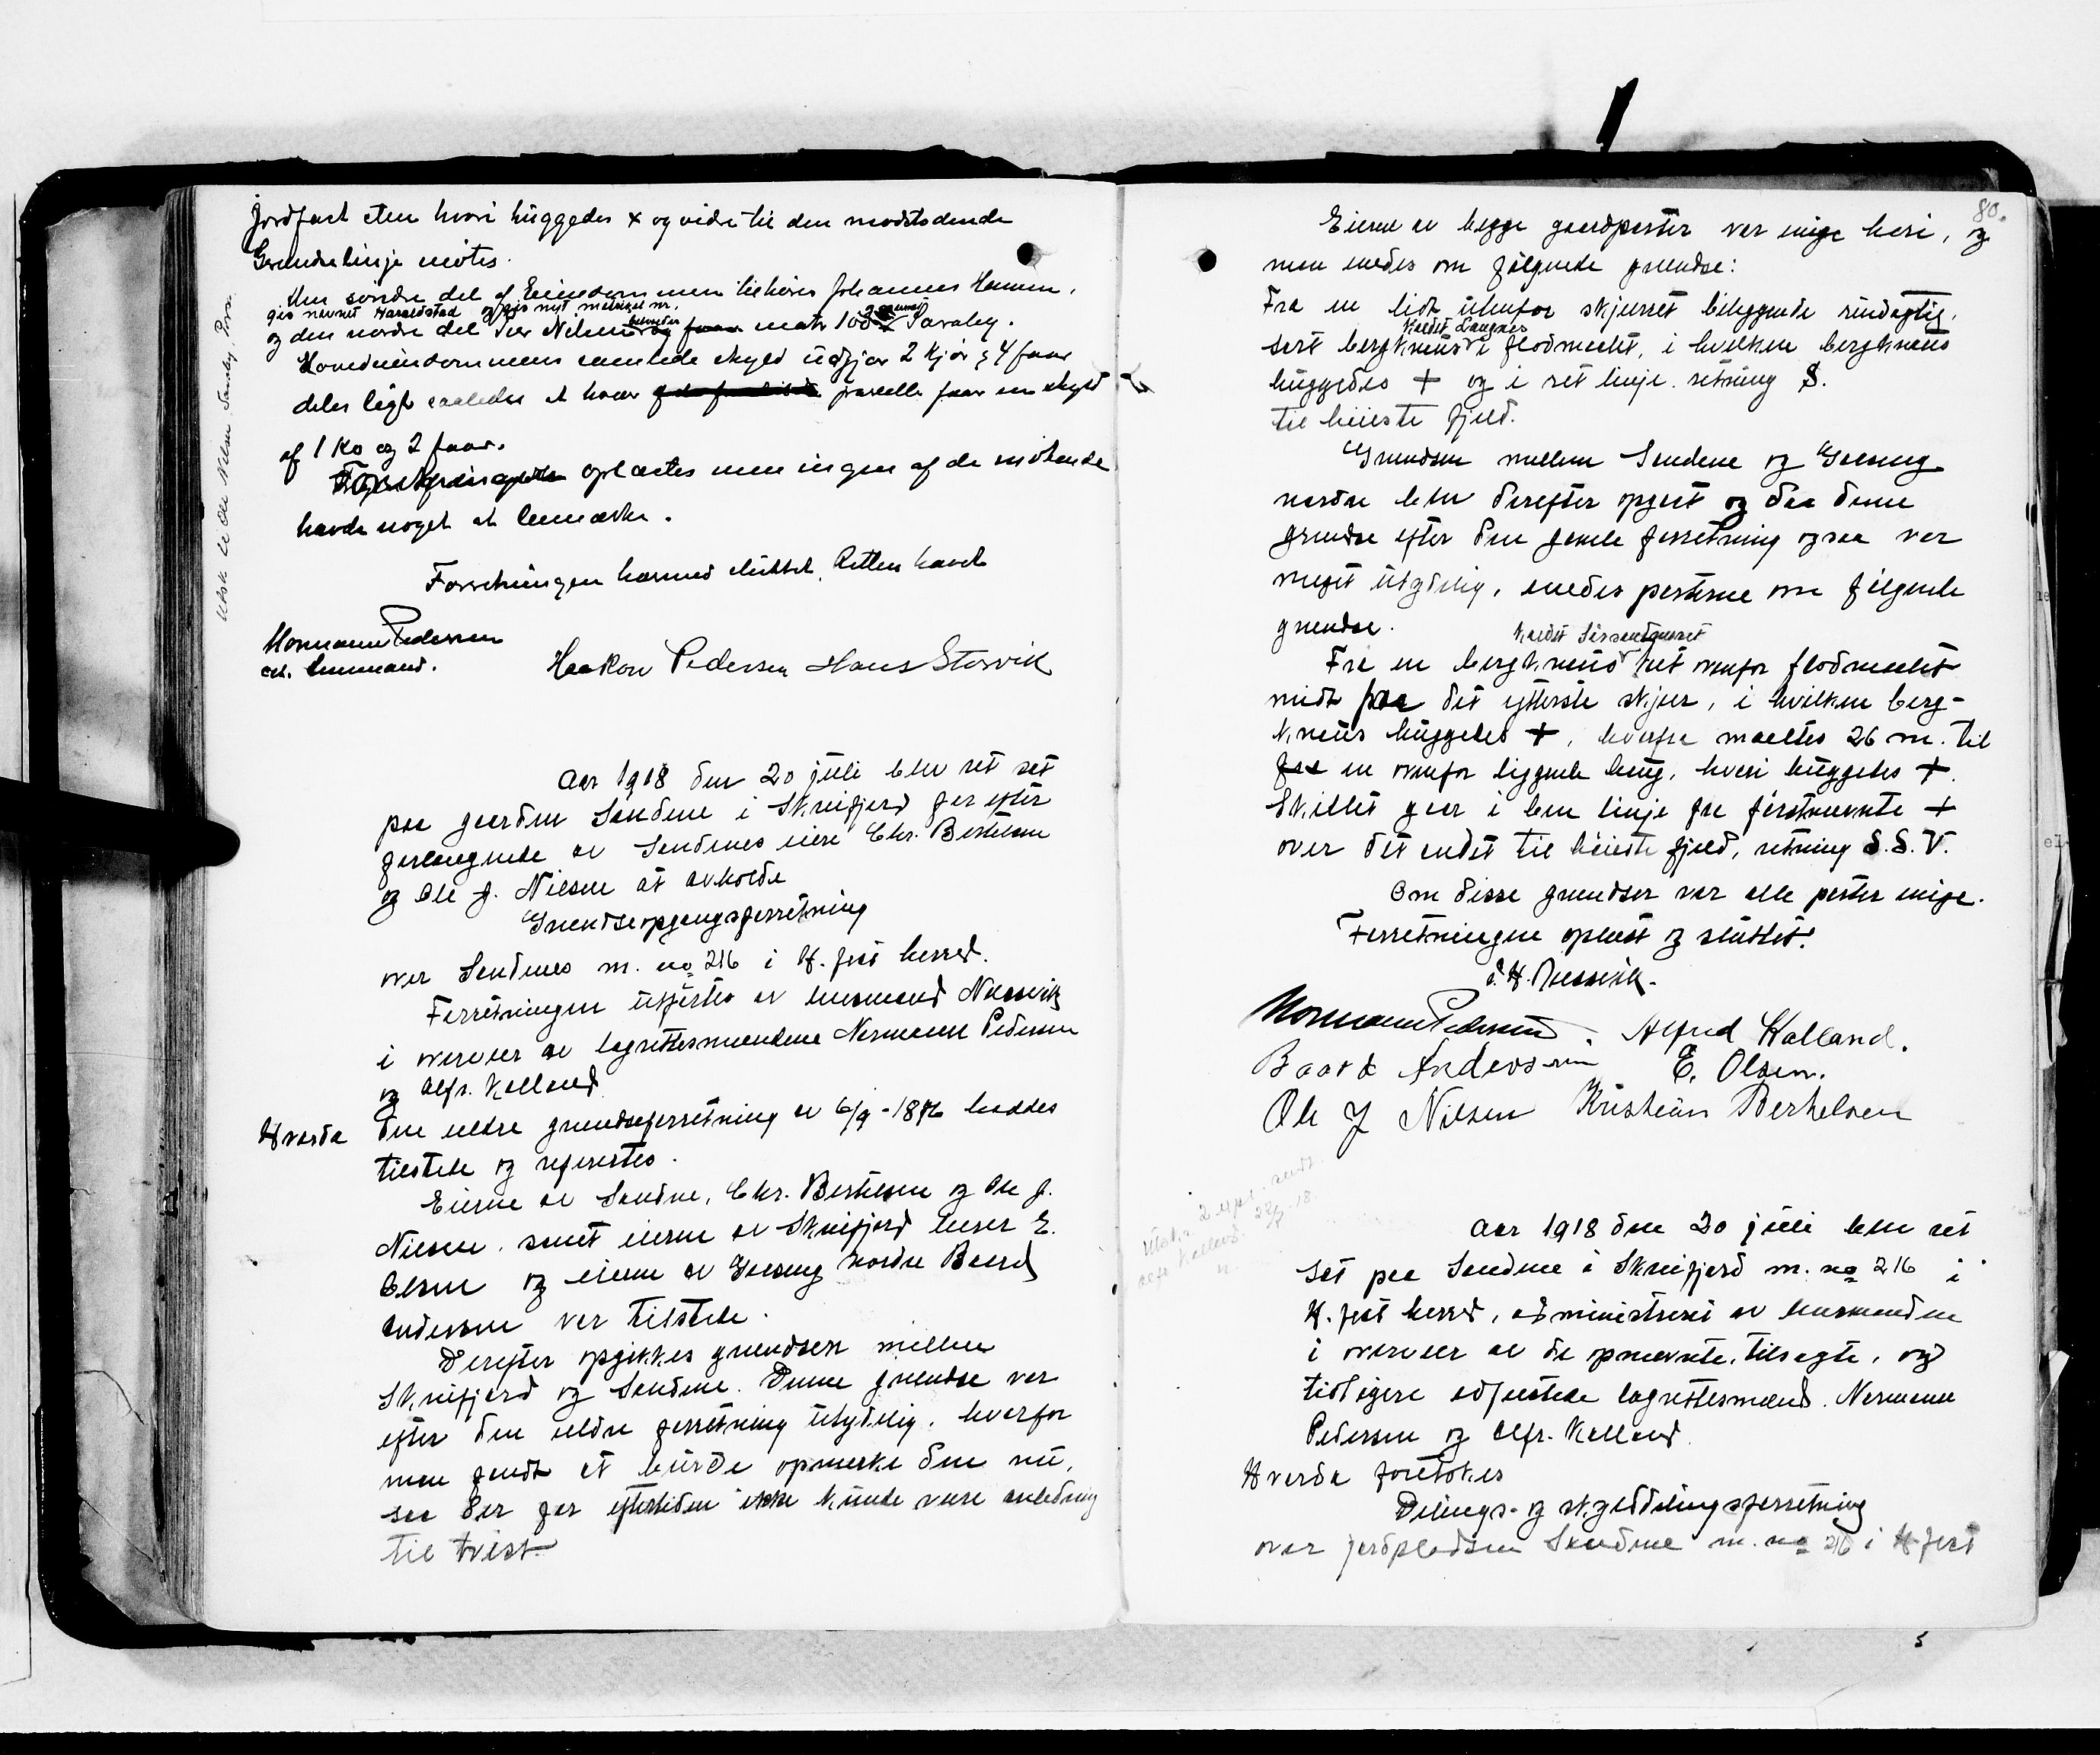 jordfast sten hvori huggedes x og vidre til den modstødende
Grændselinje møtes.
Den søndre del af Eiendommen tilhører Johannes Hansen,
gis navnet Haraldstad og gis nyt matrikel nr.
og den nordre del Peer Nilsen beholder matr 103 Saraby.
Hovedeiendommens samlede skyld udgjør 2 Kjør og 4 faar
deles ligt saaledes at hver parcelle faar en skyld
af 1 Ko og 2 faar.
Forretningen oplæstes men ingen af de møtende
havde noget at bemærke.
Forretningen hermed sluttet. Retten hævet
Normann Pedersen
cst. lensmand.
Haakon Pedersen Hans Storvik
Utsk. til Peer Nilsen Saraby, Pors.
Aar 1918 den 20 juli blev ret sat
paa gaarden Sandene i Skreifjord for efter
forlangende av Sandenes eiere Chr. Bertelsen
og Ole J. Nilsen at avholde
Grændseopgangsforretning
over Sandenes m. no 216 i H. fest herred.
Forretningen utførtes av lensmand Næssvik
i overvær av lagrettesmændene Normann Pedersen
og Alfr. Kalland.
Hvorda
den ældre grændseforretning av 6/9-1876 haddes
tilstede og referertes.
Eierne av Sandene, Chr. Bertelsen og Ole J.
Nilsen, samt eierne av Skreifjord E.
Olsen og eieren av nordre Baard
Andersen var tilstede.
Derefter opgikkes grændsen mellem
Skreifjord og Sandene. Denne grændse var
efter den ældre forretning utydelig, hvorfor
man fandt at burde opmerke den nu,
saa der for eftertiden ikke kunde være anledning
til tvist.
80.
Eierne av begge gaardparter var enige heri, og
man enedes om følgende grændse:
Fra en lidt utenfor skjæret beliggende rundagtig,
kaldt Langnes
sort bergknaus i flodmaalet, i hvilken bergknaus
huggedes + og i ret linje retning S.
til høieste fjeld.
Grændsen mellem Sandene og
nordre blev derefter opgaat og da denne
grændse efter den gamle forretning ogsaa var
meget utydelig, enedes parterne om følgende
grændse.
kaldt
Fra en bergknaus ret ovenfor flodmaalet
midt paa det ytterste skjær, i hvilken berg-
knaus huggedes +, hvorfra maaltes 26 m. til
en ovenfor liggende haug, hvori huggedes +.
Skillet gaar i lem linje fra førstnævnte +
over det andet til høieste fjeld, retning S.S.V.
Om disse grændser var alle parter enige.
Forretningen oplæst og sluttet.
J. H. Næssvik.
Normann Pedersen. Alfred Kalland.
Baard Anderssen E. Olsen.
Ole J Nilsen Kristian Berthelsen
Utsk. i 2 expl. sendt
Alfr. Kalland 22/7-18.
Aar 1918 den 20 juli blev ret
sat paa Sandene i Skreifjord m. no 216 i
H. fest herred, administrert av lensmanden
i overvær av de opnævnte, tilsagte, og
tidligere edfæstede lagrettesmænd. Normann
Pedersen og Alfr. Kalland.
Hvorda foretokes
Delings- og skylddelingsforretning
over jordpladsen Sandene m. no 216 i H. fest